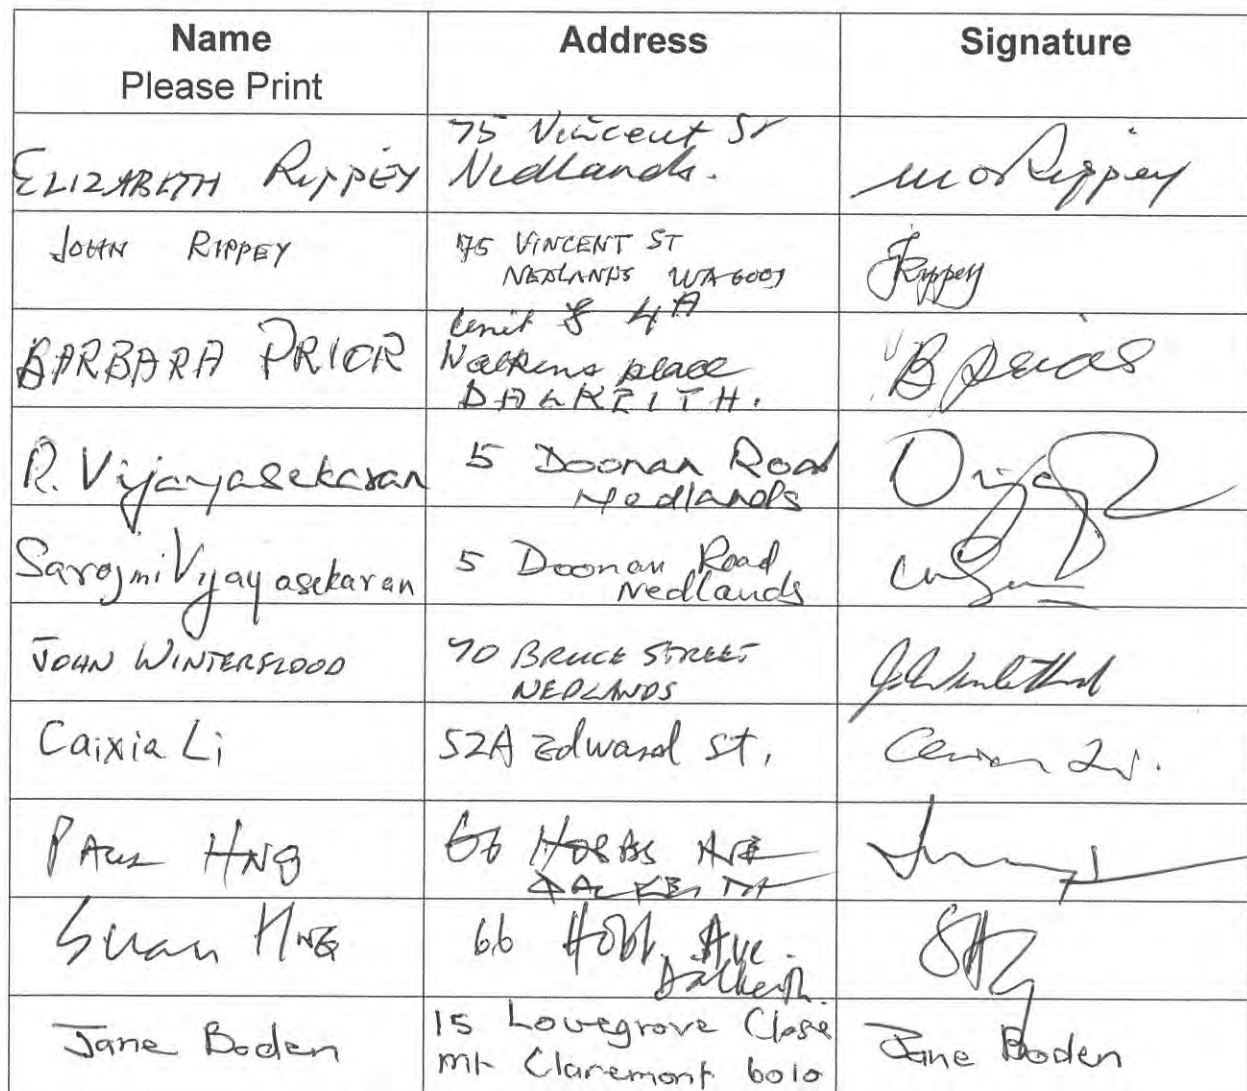 Name Address Signature
Please Print
ELIZABETH RIPPEY 75 Vincent St
Nedlands. Rippey
JOHN RIPPEY 75 VINCENT ST
NEDLANDS WA 6009 JRippey
BARBARA PRIOR Unit 8 4A
place
DALKEITH. B Prior
R. Vijayasekaran 5 Doonan Road
Nedlands
Sarojini Vijayasekaran 5 Doonan Road
Nedlands
JOHN WINTERFLOOD 70 BRUCE STREET
NEDLANDS
Caixia Li 52A Edward St,
PAUL HNG 66 HOBBS AVE
DALKEITH
Suan HNG 66 Hobbs Ave.
Dalkeith.
Jane Boden 15 Lovegrove Close
Mt Claremont 6010 Jane Boden